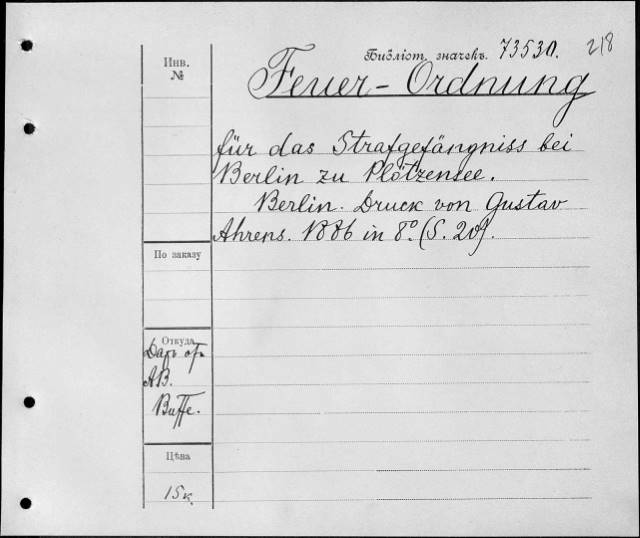 Библіот. значекъ. 73530. 218
Инв.
№
Feuer-Ordnung
für das Strafgefängniss bei
Berlin zu Plötzensee.
Berlin. Druck von Gustav
Ahrens. 1886 in 8°. (S. 20).
По заказу
Откуда
Даръ отъ
АВ.
Цѣва
15к.